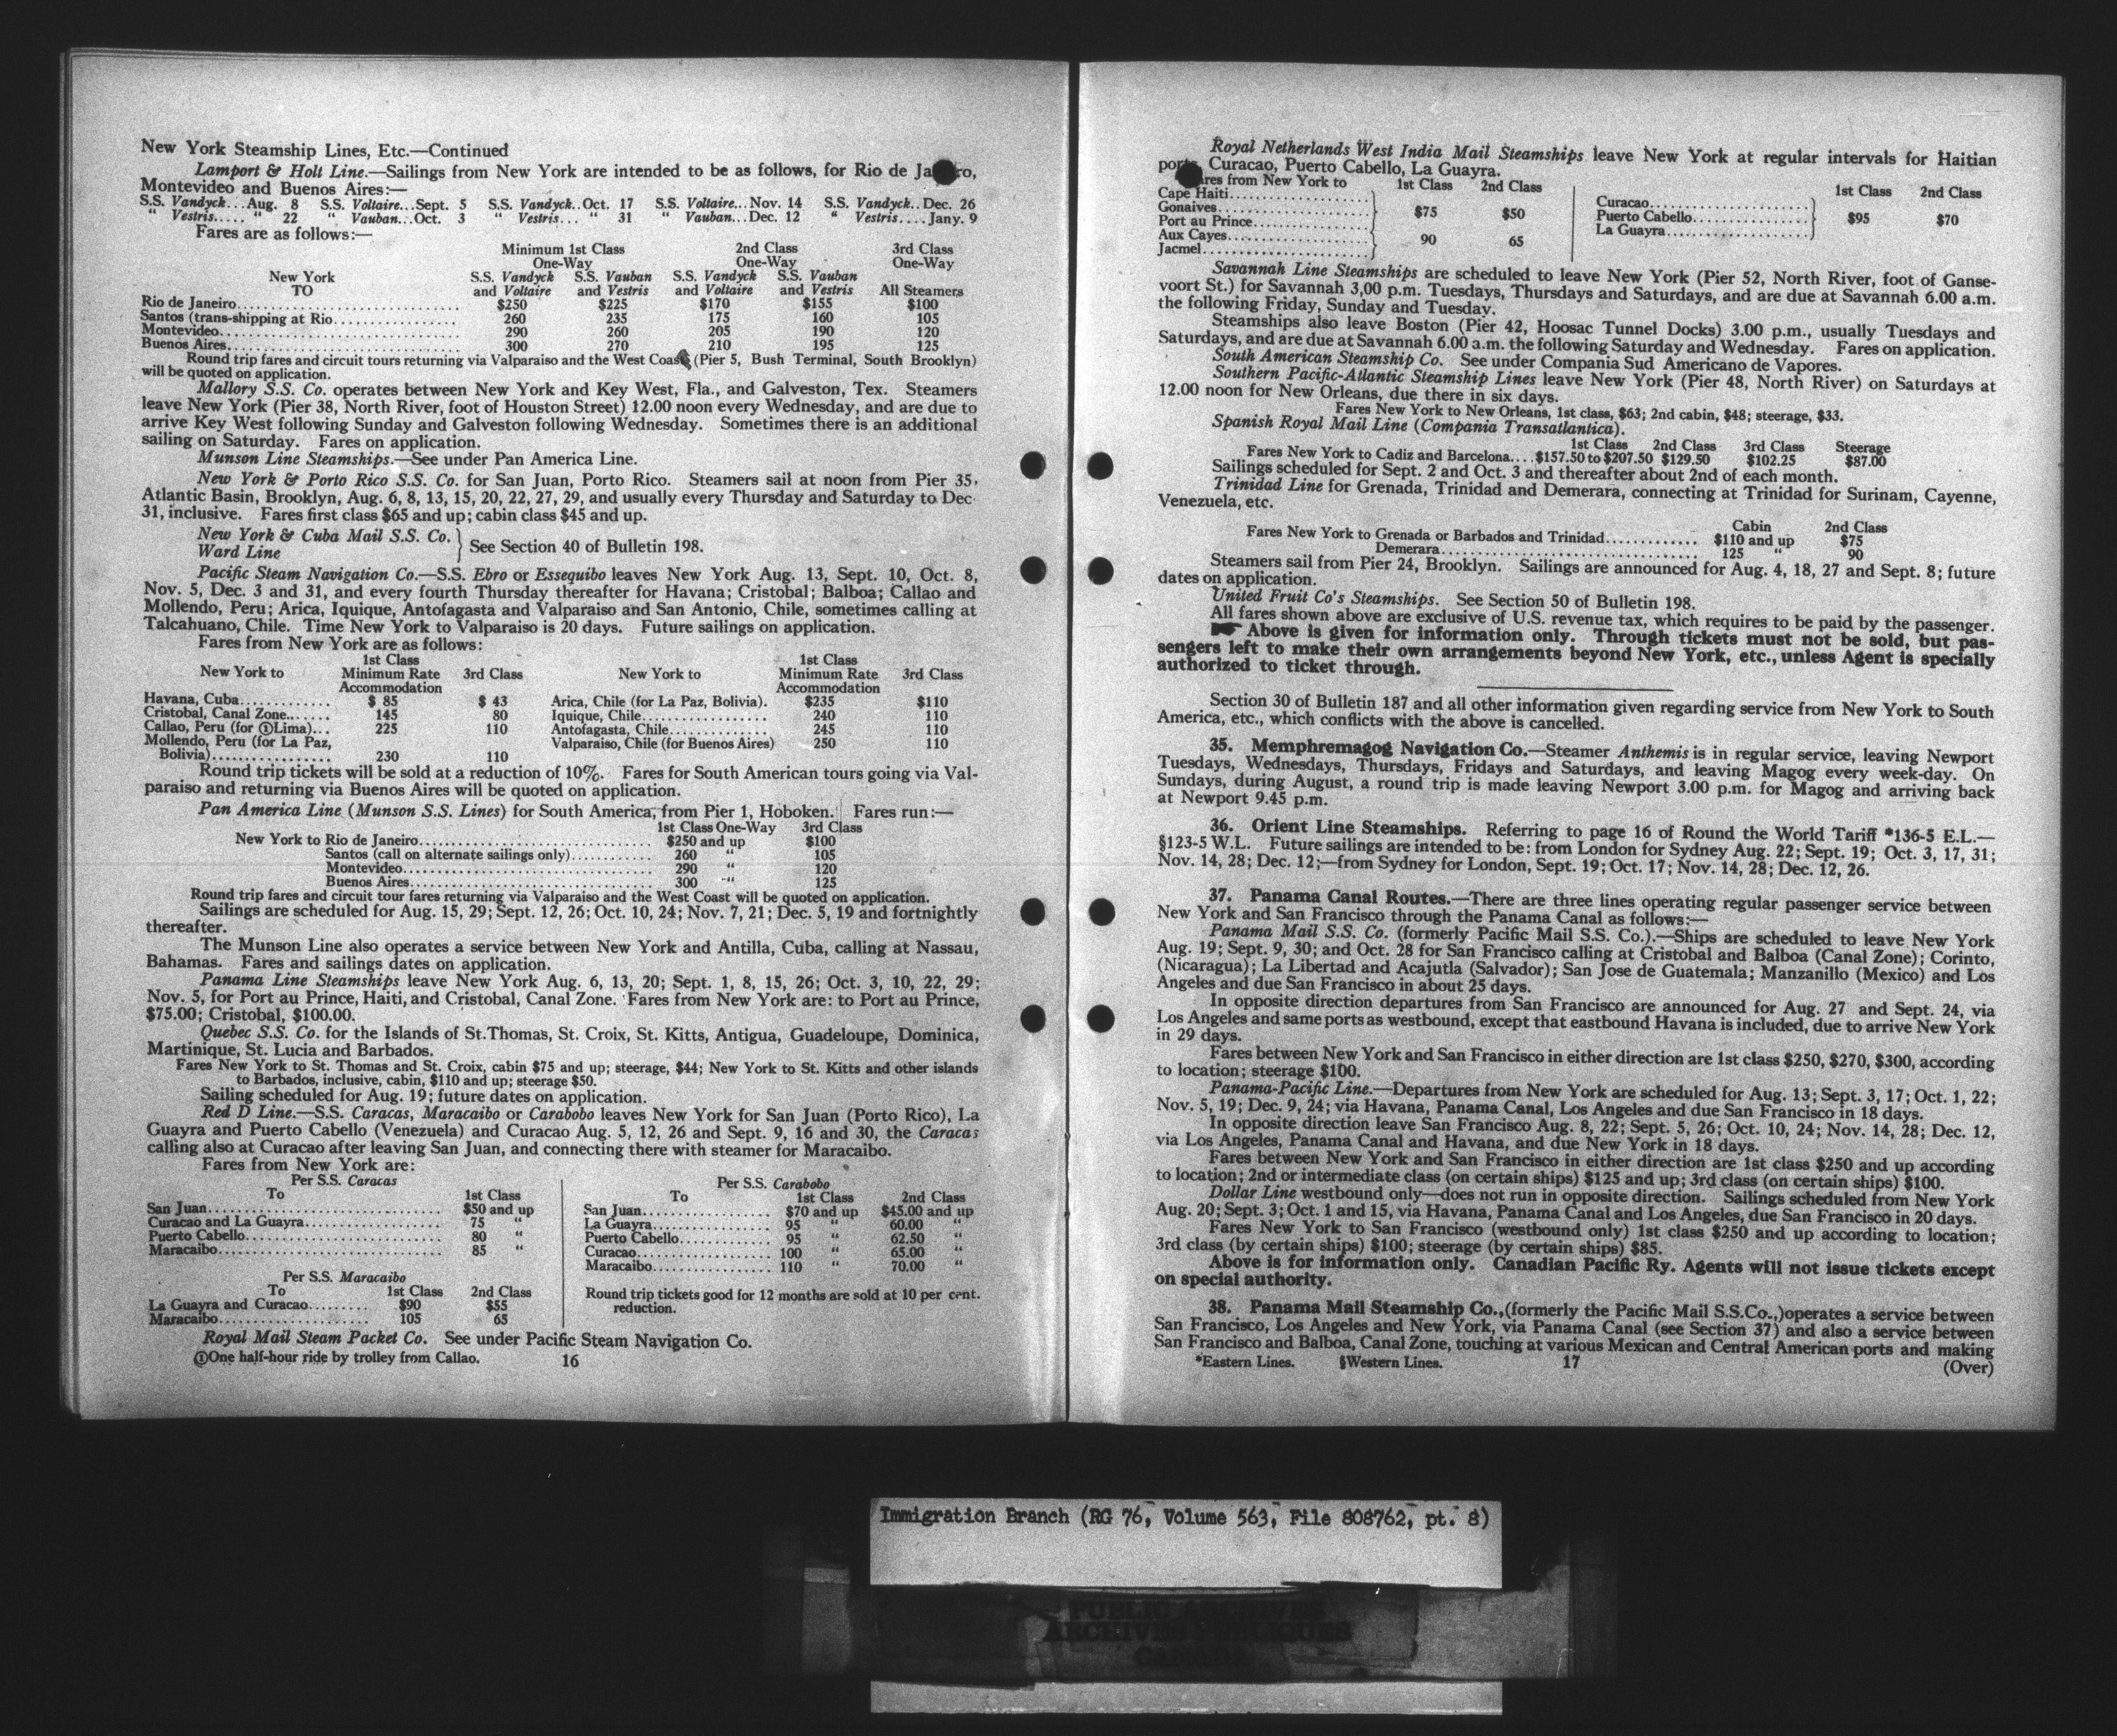 New York Steamship Lines, Etc.—Continued
Lamport & Holt Line.—Sailings from New York are intended to be as follows, for Rio de Ja ro,
Montevideo and Buenos Aires:—
S.S. Vandyck...Aug. 8 S.S. Voltaire...Sept. 5 S.S. Vandyck..Oct. 17 S.S. Voltaire...Nov. 14 S.S. Vandyck..Dec. 26
" Vestris..... " 22 " Vauban...Oct. 3 " Vestris... " 31 " Vauban...Dec. 12 " Vestris....Jany. 9
Fares are as follows:—
Minimum 1st Class 2nd Class 3rd Class
One-Way One-Way One-Way
New York S.S. Vandyck S.S. Vauban S.S. Vandyck S.S. Vauban
TO and Voltaire and Vestris and Voltaire and Vestris All Steamers
Rio de Janeiro........ $250 $225 $170 $155 $100
Santos (trans-shipping at Rio........ 260 235 175 160 105
Montevideo........ 290 260 205 190 120
Buenos Aires........ 300 270 210 195 125
Round trip fares and circuit tours returning via Valparaiso and the West Coast (Pier 5, Bush Terminal, South Brooklyn)
will be quoted on application.
Mallory S.S. Co. operates between New York and Key West, Fla., and Galveston, Tex. Steamers
leave New York (Pier 38, North River, foot of Houston Street) 12.00 noon every Wednesday, and are due to
arrive Key West following Sunday and Galveston following Wednesday. Sometimes there is an additional
sailing on Saturday. Fares on application.
Munson Line Steamships.—See under Pan America Line.
New York & Porto Rico S.S. Co. for San Juan, Porto Rico. Steamers sail at noon from Pier 35,
Atlantic Basin, Brooklyn, Aug. 6, 8, 13, 15, 20, 22, 27, 29, and usually every Thursday and Saturday to Dec
31, inclusive. Fares first class $65 and up; cabin class $45 and up.
New York & Cuba Mail S.S. Co.
Ward Line } See Section 40 of Bulletin 198.
Pacific Steam Navigation Co.—S.S. Ebro or Essequibo leaves New York Aug. 13, Sept. 10, Oct. 8,
Nov. 5, Dec. 3 and 31, and every fourth Thursday thereafter for Havana; Cristobal; Balboa; Callao and
Mollendo, Peru; Arica, Iquique, Antofagasta and Valparaiso and San Antonio, Chile, sometimes calling at
Talcahuano, Chile. Time New York to Valparaiso is 20 days. Future sailings on application.
Fares from New York are as follows:
1st Class 1st Class
New York to Minimum Rate 3rd Class New York to Minimum Rate 3rd Class
Accommodation Accommodation
Havana, Cuba........ $ 85 $ 43 Arica, Chile (for La Paz, Bolivia). $235 $110
Cristobal, Canal Zone....... 145 80 Iquique, Chile........ 240 110
Callao, Peru (for ①Lima)... 225 110 Antofagasta, Chile........ 245 110
Mollendo, Peru (for La Paz, Valparaiso, Chile (for Buenos Aires) 250 110
Bolivia)........ 230 110
Round trip tickets will be sold at a reduction of 10%. Fares for South American tours going via Val-
paraiso and returning via Buenos Aires will be quoted on application.
Pan America Line (Munson S.S. Lines) for South America, from Pier 1, Hoboken. Fares run:—
1st Class One-Way 3rd Class
New York to Rio de Janeiro........ $250 and up $100
Santos (call on alternate sailings only)........ 260 " 105
Montevideo........ 290 " 120
Buenos Aires........ 300 " 125
Round trip fares and circuit tour fares returning via Valparaiso and the West Coast will be quoted on application.
Sailings are scheduled for Aug. 15, 29; Sept. 12, 26; Oct. 10, 24; Nov. 7, 21; Dec. 5, 19 and fortnightly
thereafter.
The Munson Line also operates a service between New York and Antilla, Cuba, calling at Nassau,
Bahamas. Fares and sailings dates on application.
Panama Line Steamships leave New York Aug. 6, 13, 20; Sept. 1, 8, 15, 26; Oct. 3, 10, 22, 29;
Nov. 5, for Port au Prince, Haiti, and Cristobal, Canal Zone. Fares from New York are: to Port au Prince,
$75.00; Cristobal, $100.00.
Quebec S.S. Co. for the Islands of St.Thomas, St. Croix, St. Kitts, Antigua, Guadeloupe, Dominica,
Martinique, St. Lucia and Barbados.
Fares New York to St. Thomas and St. Croix, cabin $75 and up; steerage, $44; New York to St. Kitts and other islands
to Barbados, inclusive, cabin, $110 and up; steerage $50.
Sailing scheduled for Aug. 19; future dates on application.
Red D Line.—S.S. Caracas, Maracaibo or Carabobo leaves New York for San Juan (Porto Rico), La
Guayra and Puerto Cabello (Venezuela) and Curacao Aug. 5, 12, 26 and Sept. 9, 16 and 30, the Caracas
calling also at Curacao after leaving San Juan, and connecting there with steamer for Maracaibo.
Fares from New York are:
Per S.S. Caracas
To 1st Class
San Juan........ $50 and up
Curacao and La Guayra........ 75 "
Puerto Cabello........ 80 "
Maracaibo........ 85 "
Per S.S. Maracaibo
To 1st Class 2nd Class
La Guayra and Curacao........ $90 $55
Maracaibo........ 105 65
Per S.S. Carabobo
To 1st Class 2nd Class
San Juan........ $70 and up $45.00 and up
La Guayra........ 95 " 60.00 "
Puerto Cabello........ 95 " 62.50 "
Curacao........ 100 " 65.00 "
Maracaibo........ 110 " 70.00 "
Round trip tickets good for 12 months are sold at 10 per cent.
reduction.
Royal Mail Steam Packet Co. See under Pacific Steam Navigation Co.
①One half-hour ride by trolley from Callao. 16
Royal Netherlands West India Mail Steamships leave New York at regular intervals for Haitian
ports, Curacao, Puerto Cabello, La Guayra.
ares from New York to 1st Class 2nd Class
Cape Haiti........
Gonaives........ $75 $50
Port au Prince........
Aux Cayes........ 90 65
Jacmel........
1st Class 2nd Class
Curacao........
Puerto Cabello........ $95 $70
La Guayra........
Savannah Line Steamships are scheduled to leave New York (Pier 52, North River, foot of Ganse-
voort St.) for Savannah 3,00 p.m. Tuesdays, Thursdays and Saturdays, and are due at Savannah 6.00 a.m.
the following Friday, Sunday and Tuesday.
Steamships also leave Boston (Pier 42, Hoosac Tunnel Docks) 3.00 p.m., usually Tuesdays and
Saturdays, and are due at Savannah 6.00 a.m. the following Saturday and Wednesday. Fares on application.
South American Steamship Co. See under Compania Sud Americano de Vapores.
Southern Pacific-Atlantic Steamship Lines leave New York (Pier 48, North River) on Saturdays at
12.00 noon for New Orleans, due there in six days.
Fares New York to New Orleans, 1st class, $63; 2nd cabin, $48; steerage, $33.
Spanish Royal Mail Line (Compania Transatlantica).
1st Class 2nd Class 3rd Class Steerage
Fares New York to Cadiz and Barcelona....$157.50 to $207.50 $129.50 $102.25 $87.00
Sailings scheduled for Sept. 2 and Oct. 3 and thereafter about 2nd of each month.
Trinidad Line for Grenada, Trinidad and Demerara, connecting at Trinidad for Surinam, Cayenne,
Venezuela, etc.
Cabin 2nd Class
Fares New York to Grenada or Barbados and Trinidad........ $110 and up $75
Demerara........ 125 " 90
Steamers sail from Pier 24, Brooklyn. Sailings are announced for Aug. 4, 18, 27 and Sept. 8; future
dates on application.
United Fruit Co's Steamships. See Section 50 of Bulletin 198.
All fares shown above are exclusive of U.S. revenue tax, which requires to be paid by the passenger.
☛ Above is given for information only. Through tickets must not be sold, but pas-
sengers left to make their own arrangements beyond New York, etc., unless Agent is specially
authorized to ticket through.
Section 30 of Bulletin 187 and all other information given regarding service from New York to South
America, etc., which conflicts with the above is cancelled.
35. Memphremagog Navigation Co.—Steamer Anthemis is in regular service, leaving Newport
Tuesdays, Wednesdays, Thursdays, Fridays and Saturdays, and leaving Magog every week-day. On
Sundays, during August, a round trip is made leaving Newport 3.00 p.m. for Magog and arriving back
at Newport 9.45 p.m.
36. Orient Line Steamships. Referring to page 16 of Round the World Tariff *136-5 E.L.—
§123-5 W.L. Future sailings are intended to be: from London for Sydney Aug. 22; Sept. 19; Oct. 3, 17, 31;
Nov. 14, 28; Dec. 12;—from Sydney for London, Sept. 19; Oct. 17; Nov. 14, 28; Dec. 12, 26.
37. Panama Canal Routes.—There are three lines operating regular passenger service between
New York and San Francisco through the Panama Canal as follows:—
Panama Mail S.S. Co. (formerly Pacific Mail S.S. Co.).—Ships are scheduled to leave New York
Aug. 19; Sept. 9, 30; and Oct. 28 for San Francisco calling at Cristobal and Balboa (Canal Zone); Corinto,
(Nicaragua); La Libertad and Acajutla (Salvador); San Jose de Guatemala; Manzanillo (Mexico) and Los
Angeles and due San Francisco in about 25 days.
In opposite direction departures from San Francisco are announced for Aug. 27 and Sept. 24, via
Los Angeles and same ports as westbound, except that eastbound Havana is included, due to arrive New York
in 29 days.
Fares between New York and San Francisco in either direction are 1st class $250, $270, $300, according
to location; steerage $100.
Panama-Pacific Line.—Departures from New York are scheduled for Aug. 13; Sept. 3, 17; Oct. 1, 22;
Nov. 5, 19; Dec. 9, 24; via Havana, Panama Canal, Los Angeles and due San Francisco in 18 days.
In opposite direction leave San Francisco Aug. 8, 22; Sept. 5, 26; Oct. 10, 24; Nov. 14, 28; Dec. 12,
via Los Angeles, Panama Canal and Havana, and due New York in 18 days.
Fares between New York and San Francisco in either direction are 1st class $250 and up according
to location; 2nd or intermediate class (on certain ships) $125 and up; 3rd class (on certain ships) $100.
Dollar Line westbound only—does not run in opposite direction. Sailings scheduled from New York
Aug. 20; Sept. 3; Oct. 1 and 15, via Havana, Panama Canal and Los Angeles, due San Francisco in 20 days.
Fares New York to San Francisco (westbound only) 1st class $250 and up according to location;
3rd class (by certain ships) $100; steerage (by certain ships) $85.
Above is for information only. Canadian Pacific Ry. Agents will not issue tickets except
on special authority.
38. Panama Mail Steamship Co.,(formerly the Pacific Mail S.S.Co.,)operates a service between
San Francisco, Los Angeles and New York, via Panama Canal (see Section 37) and also a service between
San Francisco and Balboa, Canal Zone, touching at various Mexican and Central American ports and making
*Eastern Lines. §Western Lines. 17
(Over)
Immigration Branch (RG 76, Volume 563, File 808762, pt. 8)
PUBLIC ARCHIVES
ARCHIVES PUBLIQUES
CANADA